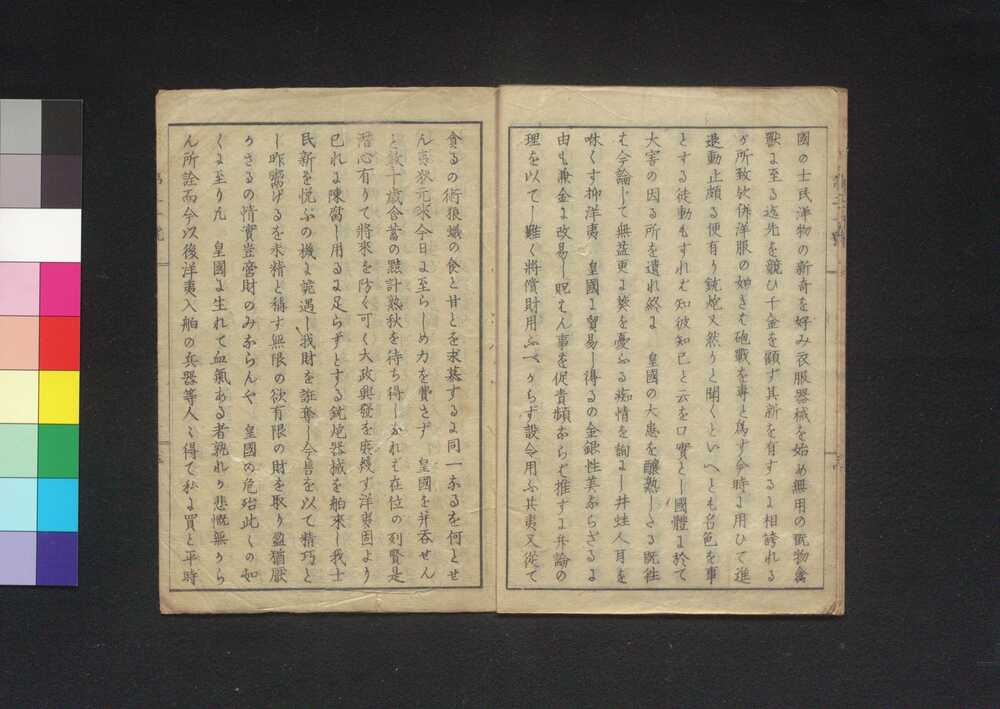 國の士民洋物の新奇を好み衣服器械を始め無用の翫物禽
獸に至る迄先を競ひ千金を顧ず其新を有するに相誇れる
が所致欤併洋服の如きも砲戰を專と爲す今時に用ひて進
退動止頗る便有り銃炮又然りと聞くといへとも名色を事
とする徒動もすれば知彼知己と云を口實とし國體に於て
大害の因る所を遺れ終に 皇國の大患を釀熟しさる既往
も今論じて無益更に葵を憂ふる痴情を詢に井蛙人目を
咻くす抑洋夷 皇國に貿易し得るの金銀性美ならざるよ
由も兼金に改易し眤せん事を促責頻ならば推すに弁論の
理を以てし難く將償財用ふべからず設令用ふ其夷又從て
貪るの術狼蟻の食と甘とを求慕するに同一なるを何とせ
ん夷族元來今日に至らしめ力を費さず 皇國を并呑せん
と數十歳含蓄の黠計熟秋を待ち得しなれば在位の列賢是
潜心有りて將來を防ぐ可く大政興發を庶幾す洋夷固より
已れに陳腐し用るに足らずとする銃炮器械を舶來し我士
民新を悦ぶの機に詫遇し我財を誑奪し今昔を以て精巧と
し昨鬻げるを未精と稱す無限の欲有限の財を取り盈猶厭
かさるの情實豈啻財のみならんや 皇國の危殆此くの如
くに至りた 皇國に生れて血氣ある者孰れか悲慨無から
ん所詮而今以後洋夷入舶の兵器等人々得て私に買と平時